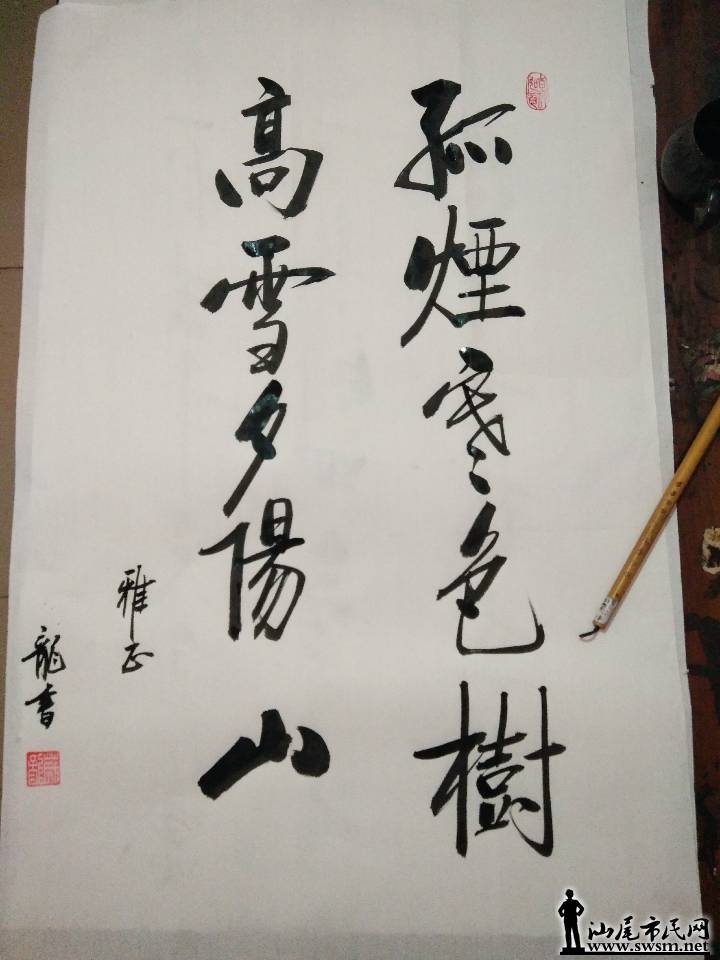 孤煙寒色樹
高雪夕陽山
雅正
龍書
汕尾市民网
www.swsm.net